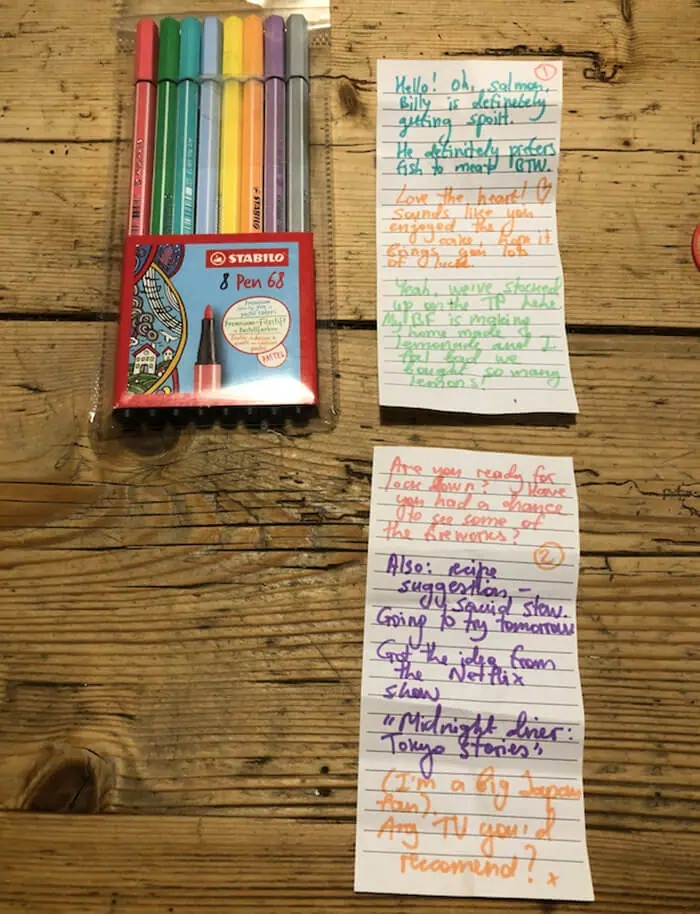 STABILO
8 Pen 68
Premium
Premium-Filzstift
PASTEL
1
Hello! Oh, salmon,
Billy is definetely
getting spoilt.
He definitely prefers
fish to meat BTW.
Love the heart! ♡
Sounds like you
enjoyed the
cake, hope it
brings you lots
of luck
Yeah, we've stocked
up on the TP hehe
My BF is making
home made
lemonade and I
feel bad we
bought so many
lemons!
Are you ready for
lock down? Have
you had a chance
to see some of
the fireworks?
2
Also: recipe
suggestion –
squid stew.
Going to try tomorrow
Got the idea from
the Netflix
show
"Midnight diner:
Tokyo Stories"
(I'm a big Japan
fan).
Any TV you'd
recomend? x